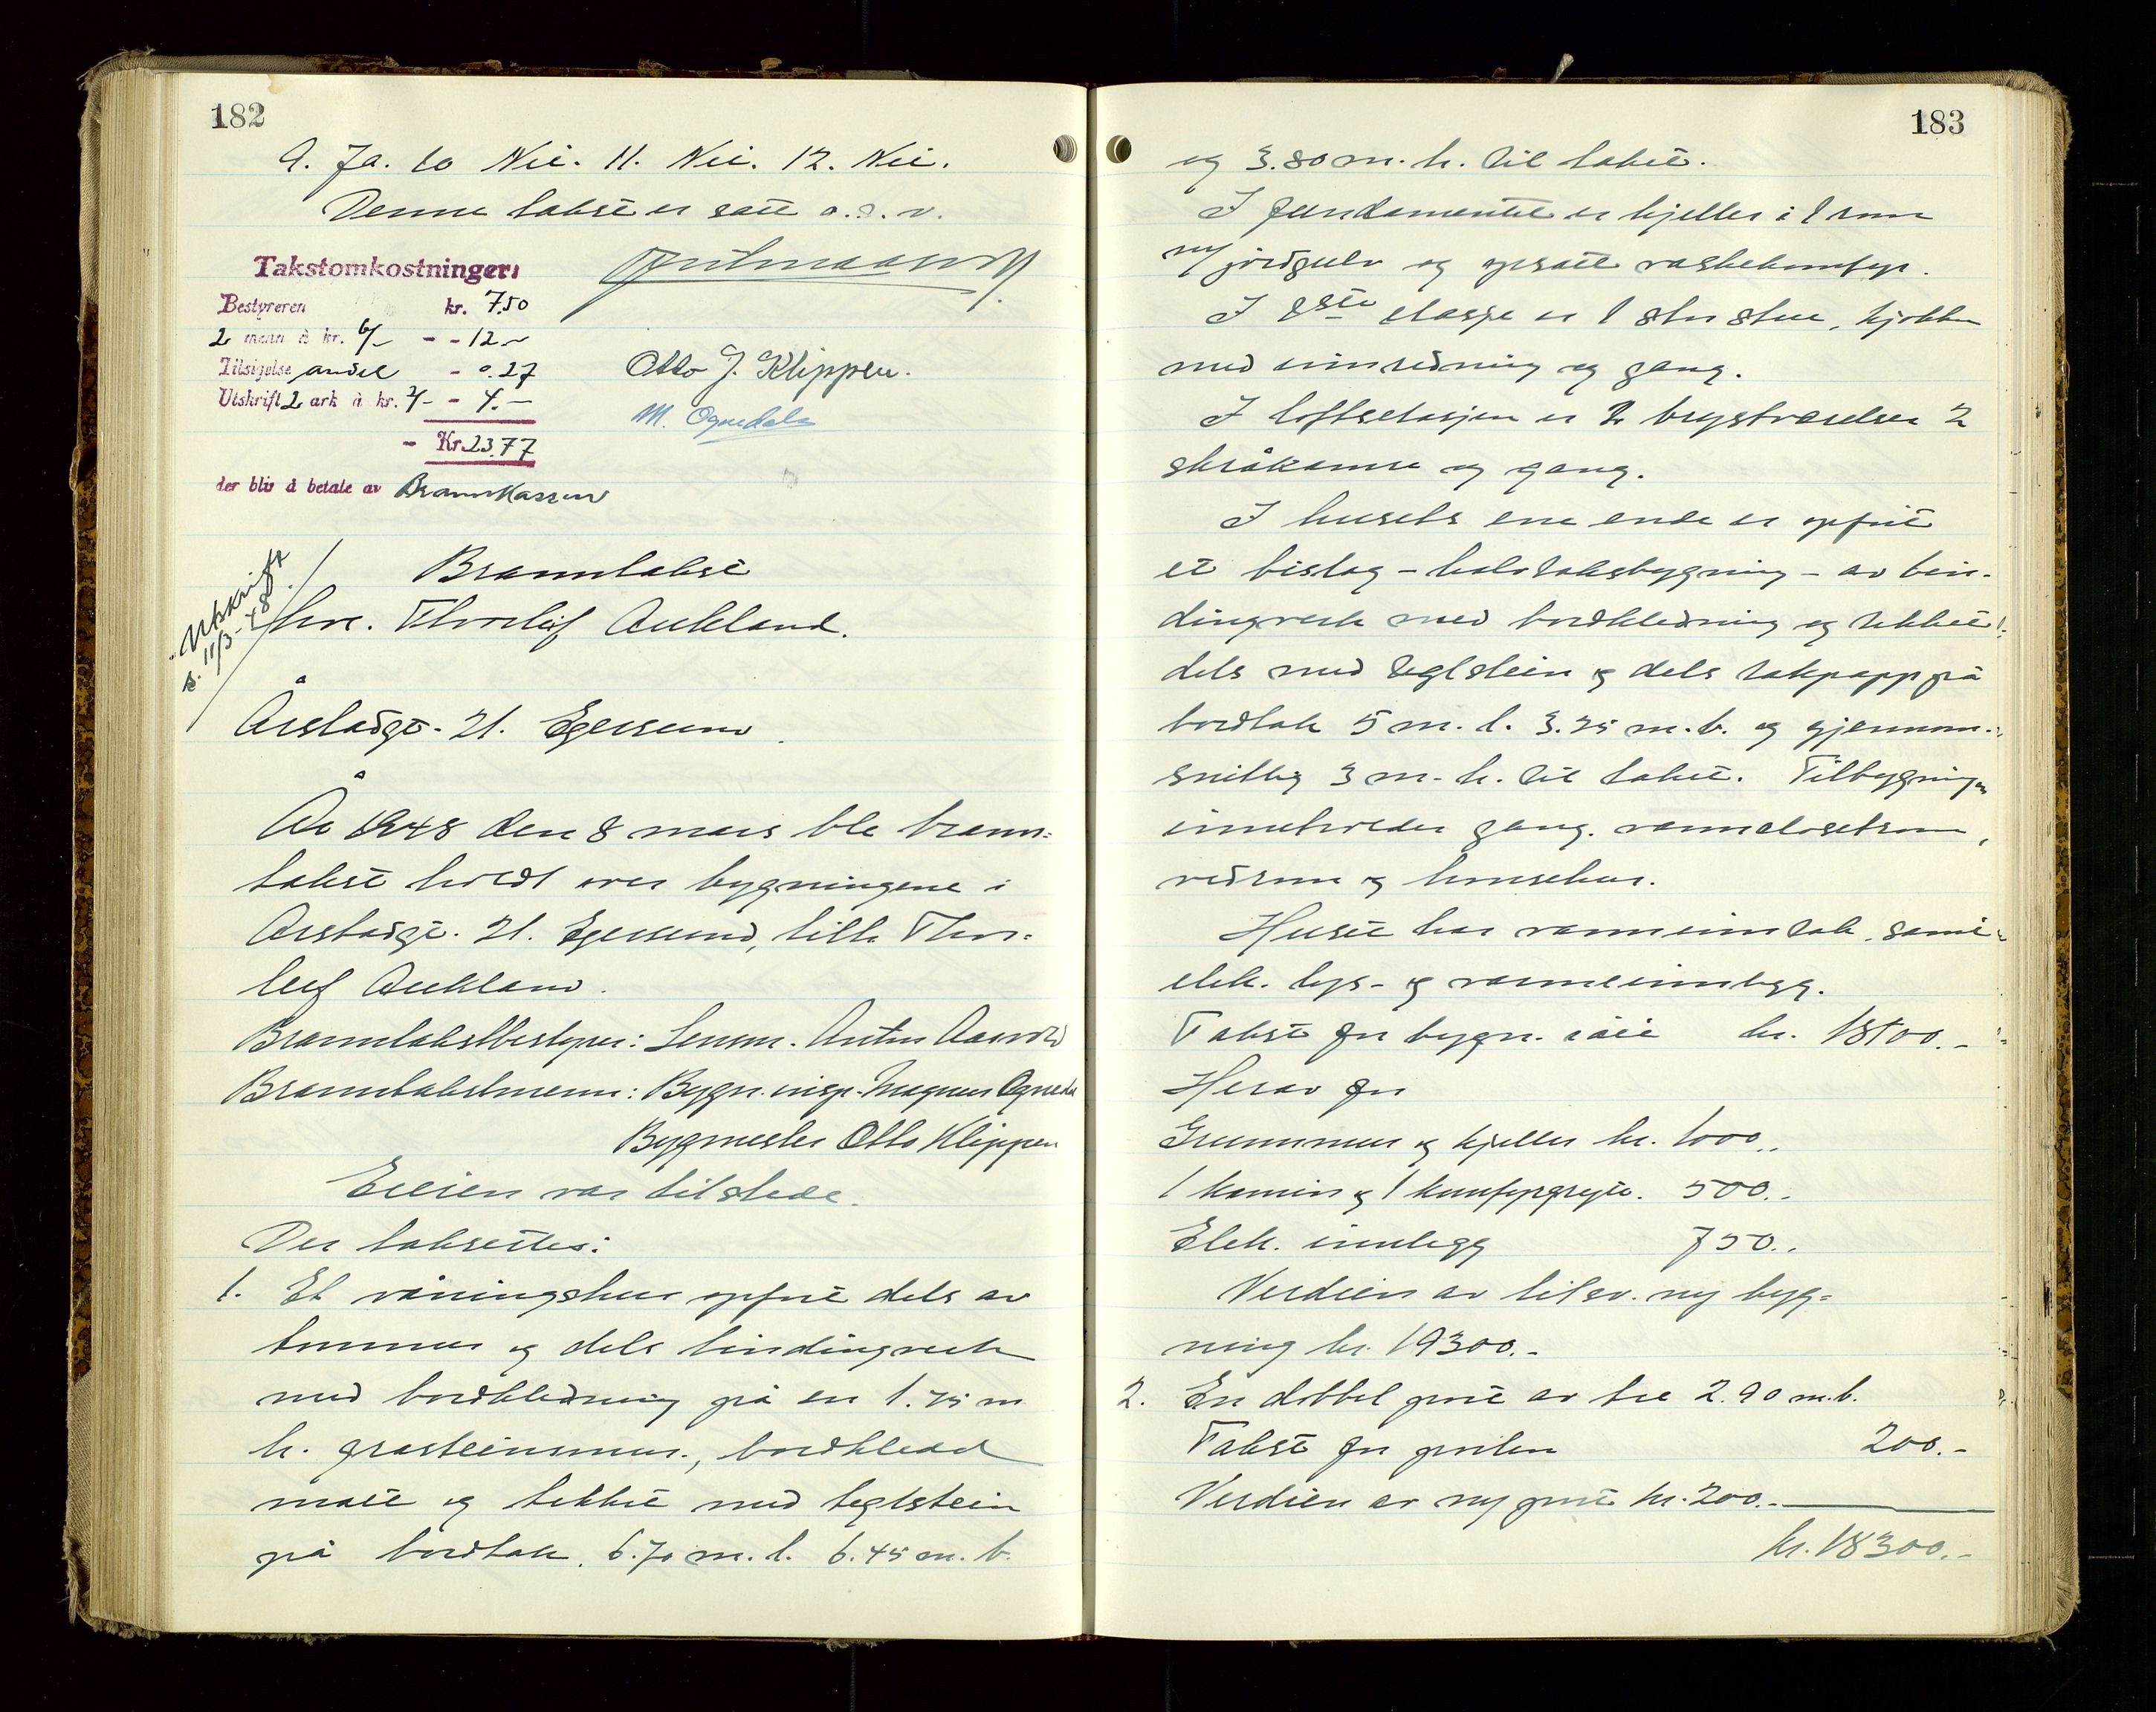 182
9. Ja. 10 Nei. 11. Nei. 12. Nei.
Denne takst er satt o.s.v.
Takstomkostninger:
Bestyreren kr. 7.50
2 menn à kr. 6/- - - 12.-
Tilsigelse andel - 0.27
Utskrift 2 ark à kr. 2/- - 4.-
- Kr. 23.77
der blir å betale av Brannkassen
Otto J. Klippen.
M. Ognedal
Utskrift
s. 11/3-48.
Branntakst
hos. Thorleif Aukland.
Årstadgt. 21. Egersund.
År 1948 den 8 mars ble brann-
takst holdt over bygningene i
Årstadgt. 21. Egersund, tilh. Thor-
leif Aukland.
Branntakstbestyrer: Lensm. Anton Aasvold
Branntakstmenn: Bygn. insp. Magnus Ognedal
Bygmester Otto Klippen
Eieren var tilstede.
Der takseres:
1. Et våningshus opført dels av
tømmer og dels bindingverk
med bordkledning på en 1.75 m
h. gråsteinsmur, bordkledd
malt og tekket med teglstein
på bordtak. 6.70 m. l. 6.45 m. b.
183
og 3.80 m. h. til taket.
I fundamentet er kjeller i 1 rom
m/ jordgulv og opsatt vaskekomfyr.
I 1ste etasje er 1 stor stue, kjøkken
med innredning og gang.
I loftsetasjen er 2 brystværelser 2
skråkamre og gang.
I husets ene ende er opført
et bislag - halvtaksbygning - av bin-
dingverk med bordkledning og tekket
dels med teglstein og dels takpapp på
bordtak 5 m. l. 3.25 m. b. og gjennom-
snittlig 3 m. h. til taket. Tilbygningen
inneholder gang. vannclosetrom,
vedrom og hønsehus.
Huset har vanninntak, samt
elek. lys- og varmeinnlegg.
Takst for bygn. i alt kr. 18100.-
Herav for
Grunnmur og kjeller kr. 1000.-
1 kamin og 1 komfyrgryte. 500.-
Elek. innlegg 750.-
Verdien av tilsv. ny byg-
ning kr. 19300.-
2. En dobbel port av tre 2.90 m. b.
Takst for porten 200.-
Verdien av ny port kr. 200.-
kr. 18300.-